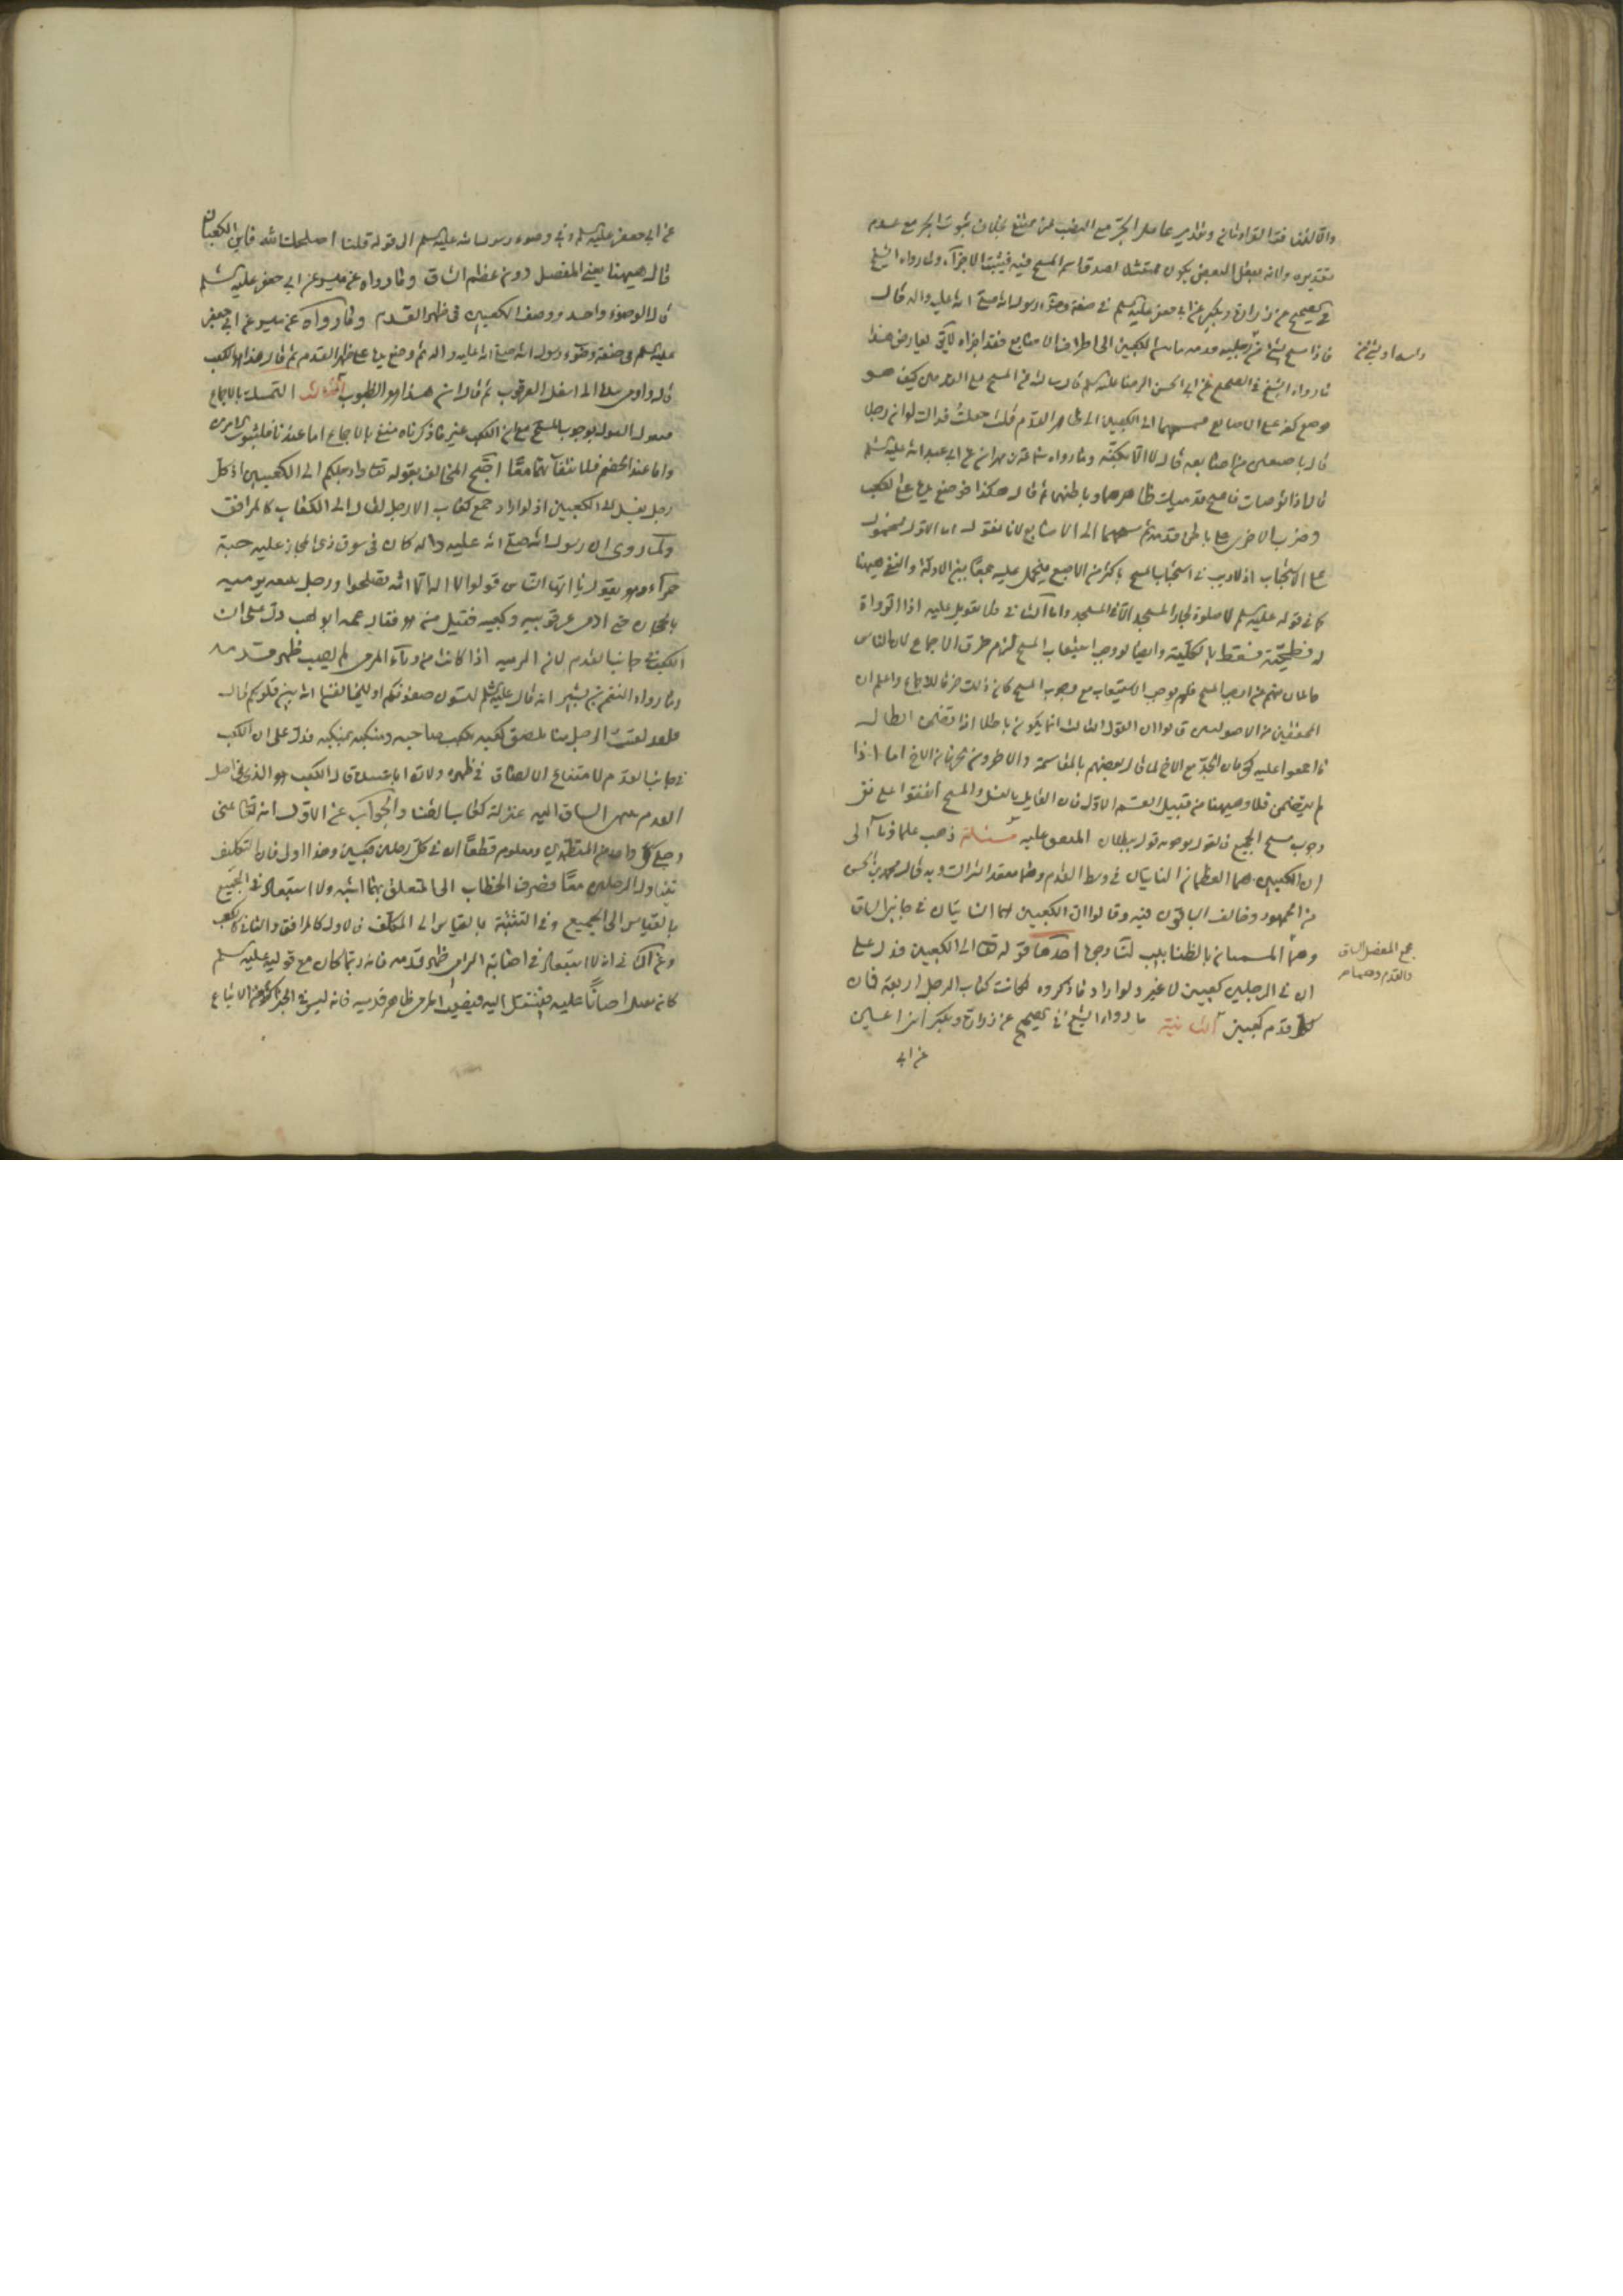 والا لتنافت القراءتان وتقدير عامل الجر مع النصب ممتنع بخلاف ثبوت الجر مع عدم
تقديره ولانه بفعل البعض يكون ممتثلا لصدق اسم المسح فيه فيثبت الاجزاء ولما رواه الشيخ
في الصحيح عن زرارة وبكير عن ابي جعفر عليه السلم في صفة وضوء رسول الله صلى الله عليه واله قال
فاذا مسح بشئ من رجليه قدميه ما بين الكعبين الى اطراف الاصابع فقد اجزاه لا يقال يعارض هذا
راسه او بشئ من
ما رواه الشيخ في الصحيح عن ابي الحسن الرضا عليه السلم قال سالته عن المسح على القدمين كيف هو
فوضع كفه على الاصابع فمسحها الى الكعبين الى ظاهر القدم قلت جعلت فداك لو ان رجلا
قال باصبعين من اصابعه قال لا الا بكفه وما رواه سماعة بن مهران عن ابي عبد الله عليه السلم
قال اذا توضات فامسح قدميك ظاهرهما وباطنهما ثم قال هكذا فوضع يده على الكعب
وضرب الاخرى على باطن قدمه ثم مسحهما الى الاصابع لانا نقول اما الاول فمحمول
على الاستحباب اذ لا ريب في استحباب المسح باكثر من الاصبع فيحمل عليه جمعا بين الادلة والنفي ههنا
كما في قوله عليه السلم لا صلوة لجار المسجد الا في المسجد واما الثاني فلا تعويل عليه اذ الرواة
له فطحية فسقط بالكلية وايضا لو وجب استيعاب المسح لزم خرق الاجماع لان الناس
قائلان منهم من اوجب المسح فلم يوجب الاستيعاب مع وجوب المسح كان ذلك خرقا للاجماع واعلم ان
المحققين من الاصوليين قالوا ان القول الثالث انما يكون باطلا اذا تضمن ابطال
ما اجمعوا عليه كحرمان الجد مع الاخ لما قال بعضهم بالمقاسمة والاخرون بحرمان الاخ اما اذا
لم يتضمن فلا وههنا من قبيل القسم الاول فان القائل بالغسل والمسح اتفقوا على نفى
وجوب مسح الجميع فالقول بوجوبه قول ببطلان المتفق عليه مسئلة ذهب علماؤنا الى
ان الكعبين هما العظمان الناتيان في وسط القدم وهما معقد الشراك وبه قال محمد بن الحسن
من الجمهور وخالف الباقون فيه وقالوا ان الكعبين هما الناتيان في جانبي الساق
وهما المسميان بالظنابيب لنا وجوه احدها قوله تعالى الى الكعبين فدل على
مجمع المفصل الساق
والقدم وهما
ان في الرجلين كعبين لا غير ولو اراد ما ذكروه لكانت كعاب الرجل اربعة فان
لكل قدم كعبين الثانية ما رواه الشيخ في الصحيح عن زرارة وبكير ابني اعين
عن ابي
عن ابي جعفر عليه السلم في وضوء رسول الله عليه السلم الى قوله قلنا اصلحك الله فاين الكعبان
قال ههنا يعني المفصل دون عظم الساق وما رواه عن ميسر عن ابي جعفر عليه السلم
قال الوضوء واحد ووصف الكعبين في ظهر القدم وما رواه عن ميسر عن ابي جعفر
عليه السلم في صفة وضوء رسول الله صلى الله عليه واله ثم وضع يده على ظهر القدم ثم قال هذا هو الكعب
قال واومى بيده الى اسفل العرقوب ثم قال ان هذا هو الظنبوب الثالث التمسك بالاجماع
فنقول القول بوجوب المسح مع ان الكعب غير ما ذكرناه منتف بالاجماع اما عندنا فلثبوت الامرين
واما عند الخصم فلانتفائهما معا احتج المخالف بقوله تعالى وارجلكم الى الكعبين اذ كل
رجل يغسل الى الكعبين اذ لو اراد جمع كعاب الارجل لقال الى الكعاب كالمرافق
ولما روى ان رسول الله صلى الله عليه واله كان في سوق ذي المجاز عليه جبة
حمراء وهو يقول يا ايها الناس قولوا لا اله الا الله تفلحوا ورجل يتبعه يرميه
بالحجارة حتى ادمى عرقوبيه وكعبيه فقيل من هو فقال عمه ابو لهب دل على ان
الكعب في جانب القدم لان الرمية اذا كانت من وراء المرمى لم يصب ظهر قدمه
وما رواه النعمن بن بشير انه قال عليه السلم لتسون صفوفكم او ليخالفن الله بين قلوبكم قال
فلقد رايت الرجل منا يلصق كعبه بكعب صاحبه ومنكبه بمنكبه فدل على ان الكعب
في جانب القدم لامتناع الالصاق في ظهره ولان ابا عبيد قال الكعب هو الذي في اصل
القدم ينتهى الساق اليه بمنزلة كعاب القنا والجواب عن الاول انه تعالى عنى
رجلي كل واحد من المتطهرين ومعلوم قطعا ان في كل رجلين كعبين وهذا اولى فان التكليف
يتناول الرجلين معا فصرف الخطاب الى المتعلق بهما اشبه ولا استبعاد في الجمع
بالقياس الى الجميع وفي التثنية بالقياس الى المكلف فالاول كالمرافق والثاني كالكعب
وعن الثاني انه لا استبعاد في اصابة الرامى ظهر قدمه فانه ربما كان مع توليه عليه السلم
كان مقبلا احيانا عليه فيلتفت اليه فيصيب الحجر ظاهر قدميه فانه ليس في الخبر كونه الاتباع